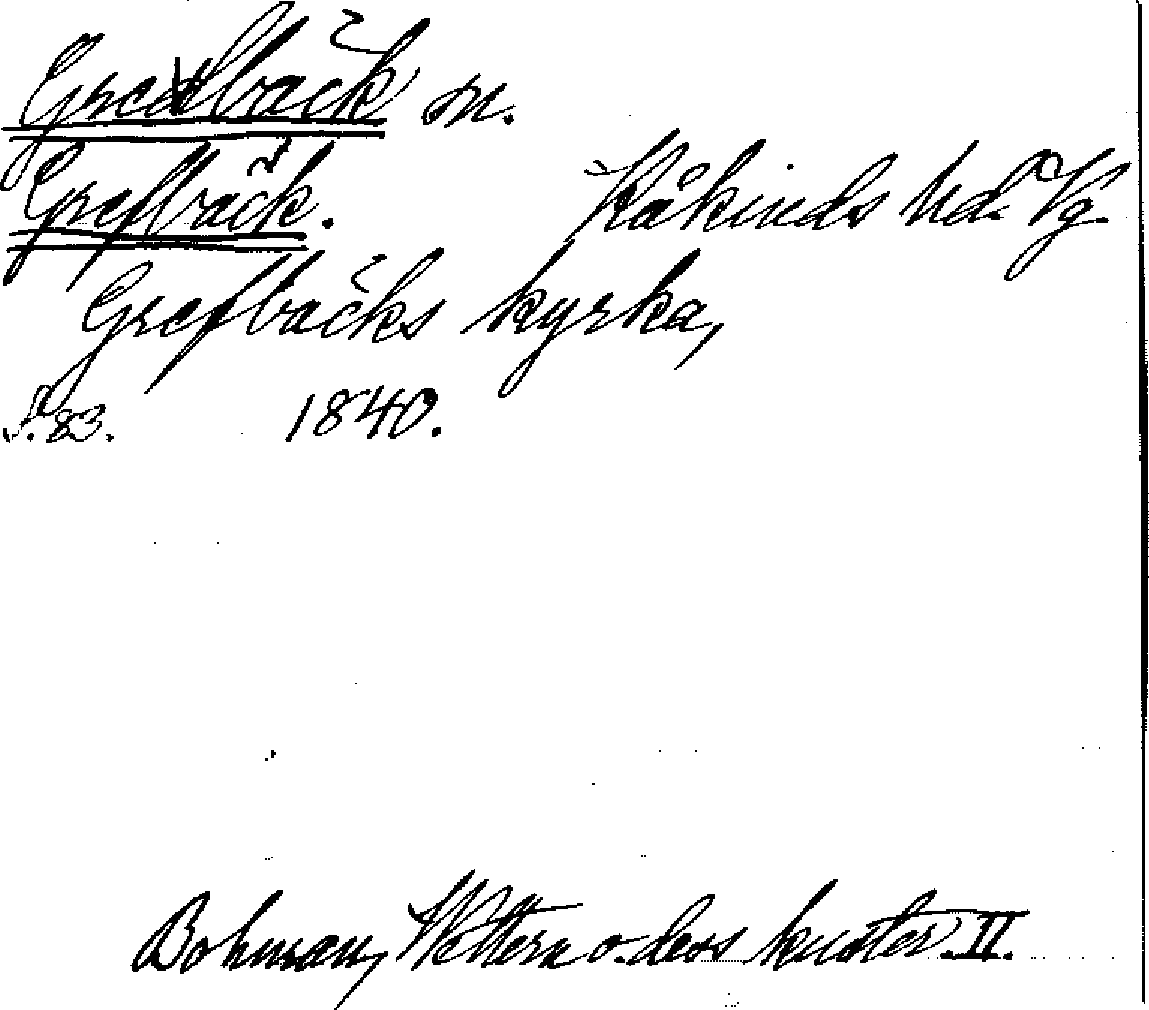 Grevbäck sn.
Grefbäck. Kåkinds hd. Vg.
Grefbäcks kyrka,
S. 83. 1840.
Bohman, Wettern o. dess kuster. II.